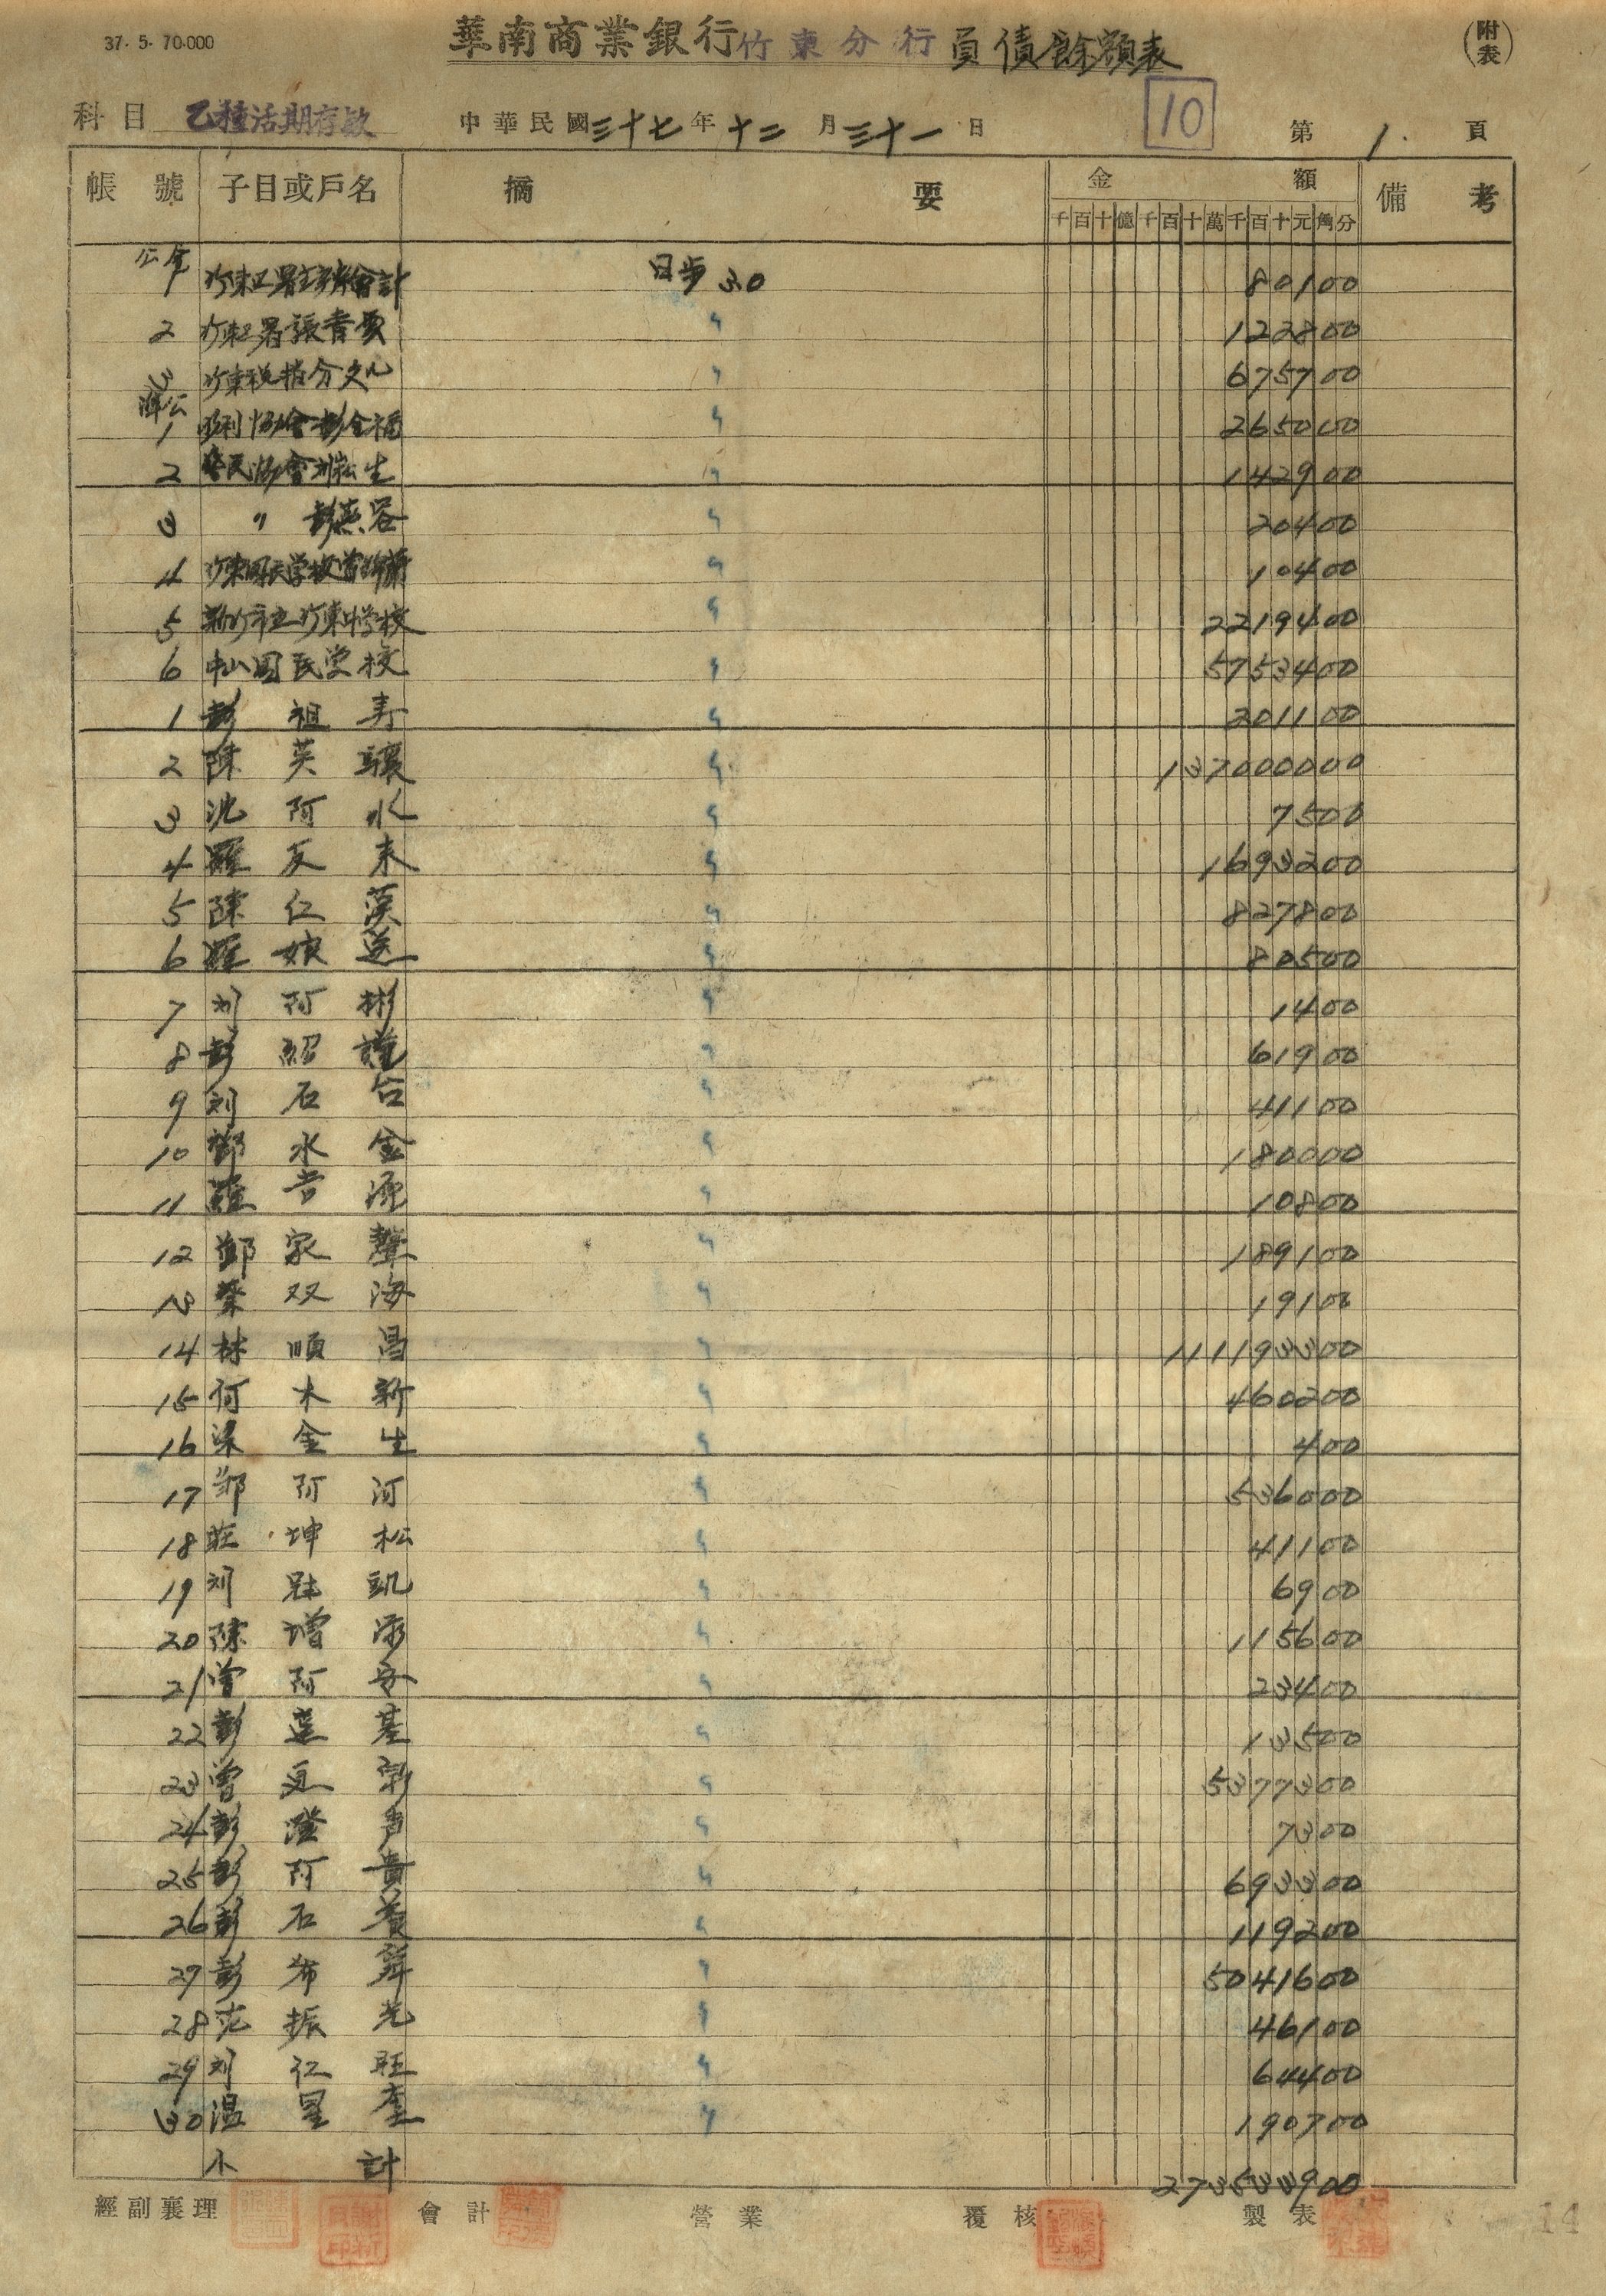 37. 5. 70.000
華南商業銀行竹東分行 負債餘額表
(附表)
科目 乙種活期存款 中華民國三十七年十二月三十一日 10 第1.頁
帳號 子目或戶名 摘要 金額 備考
千百十億千百十萬千百十元角分
公金
1 竹東區署 會計 日步 3.0 80100
2 竹東區署張香 〃 122800
3 竹東稅捐分 〃 675700
準公
1 水利協會彭金福 〃 265000
2 農民協會劉松生 〃 142900
3 〃 彭 〃 20400
4 竹東國民学校 〃 10400
5 新竹市立竹東中学校 〃 2219400
6 中山国民学校 〃 5753400
1 彭祖寿 〃 201100
2 陳英驤 〃 137000000
3 沈阿水 〃 7500
4 羅友来 〃 1693200
5 陳仁漢 〃 827800
6 羅娘送 〃 80500
7 刘阿彬 〃 1400
8 彭紹 〃 61900
9 刘石台 〃 41100
10 鄧水金 〃 180000
11 羅吉源 〃 10800
12 鄧家聲 〃 189100
13 葉双海 〃 19100
14 林順昌 〃 111193300
15 何木新 〃 460200
16 梁金生 〃 400
17 鄧阿河 〃 536000
18 莊坤松 〃 41100
19 刘 凱 〃 6900
20 陳增添 〃 115600
21 曾阿安 〃 23400
22 彭 基 〃 13500
23 曾 新 〃 5377300
24 彭澄声 〃 7300
25 彭阿貴 〃 693300
26 彭石養 〃 119200
27 彭布 〃 5041600
28 范振光 〃 46100
29 刘仁旺 〃 64400
30 温星奎 〃 190700
小計 273533900
經副襄理 會計 營業 覆核 製表
14